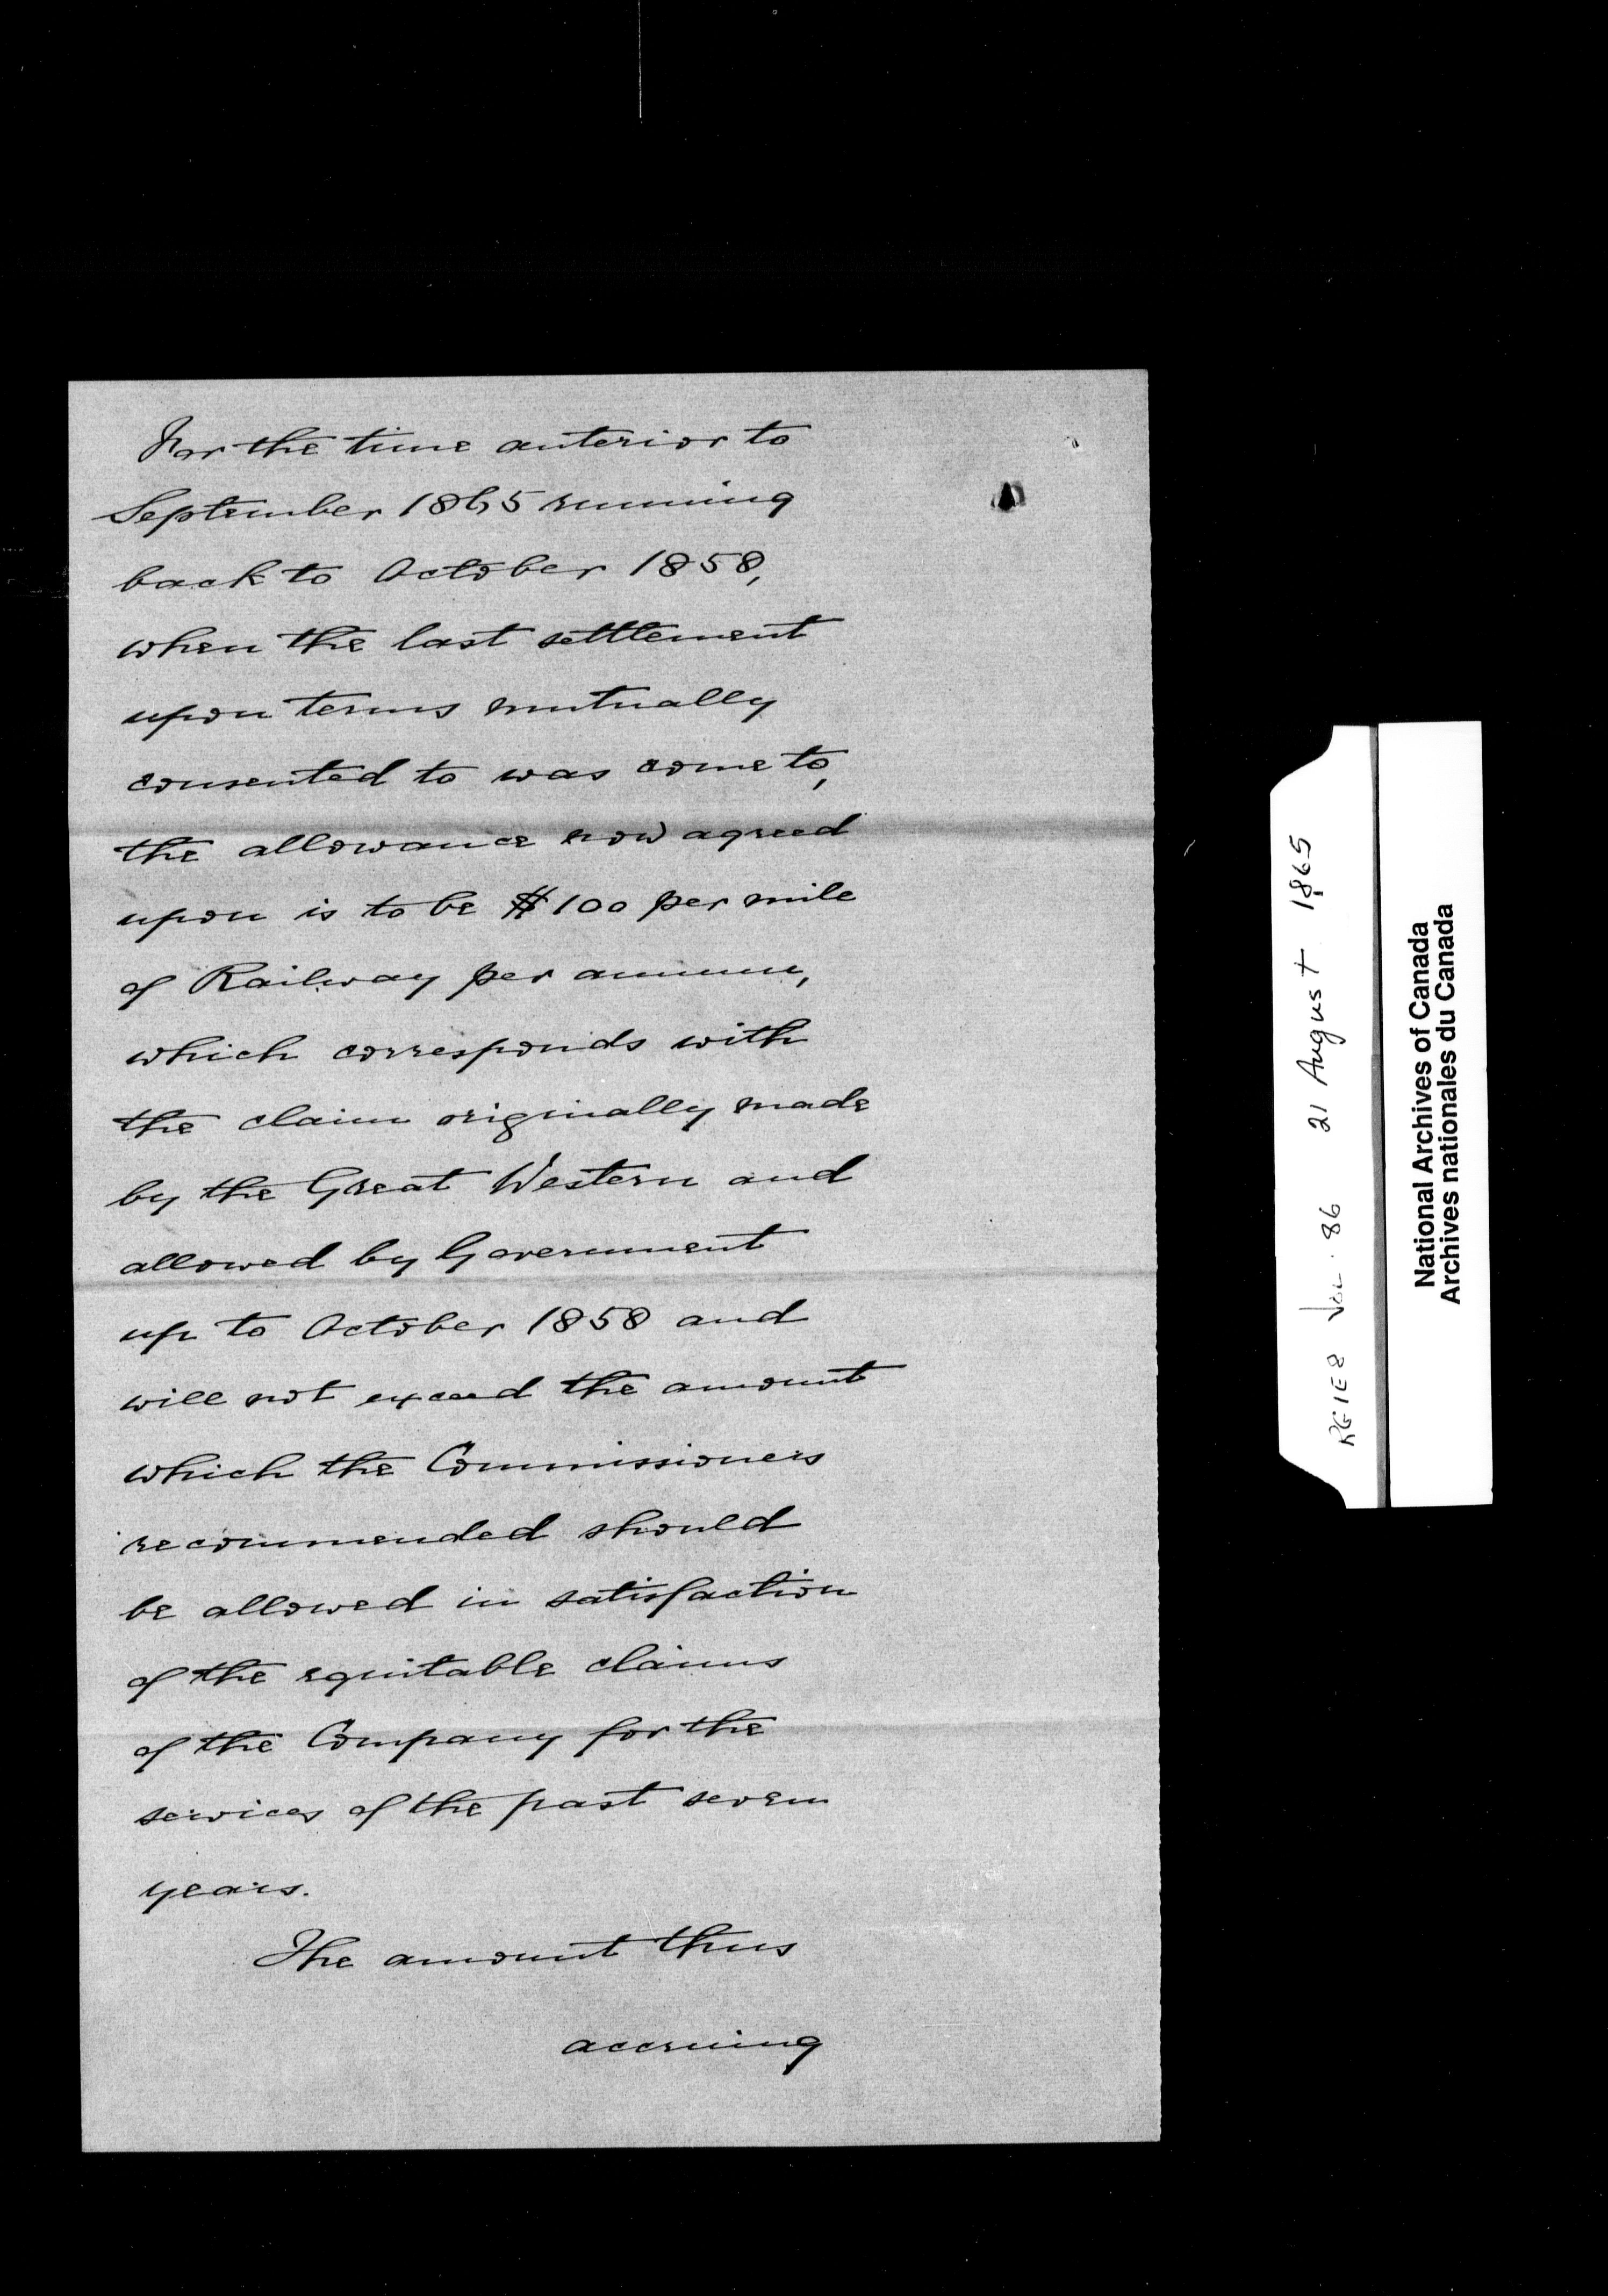 For the time anterior to
September 1865 running
back to October 1858,
when the last settlement
upon terms mutually
consented to was come to,
the allowance now agreed
upon is to be $100 per mile
of Railway per annum,
which corresponds with
the claim originally made
by the Great Western and
allowed by Government
up to October 1858 and
will not exceed the amount
which the Commissioners
recommended should
be allowed in satisfaction
of the equitable claims
of the Company for the
services of the past seven
years.
The amount thus
accruing
RG1E8 Vol. 86 21 August 1865
National Archives of Canada
Archives nationales du Canada